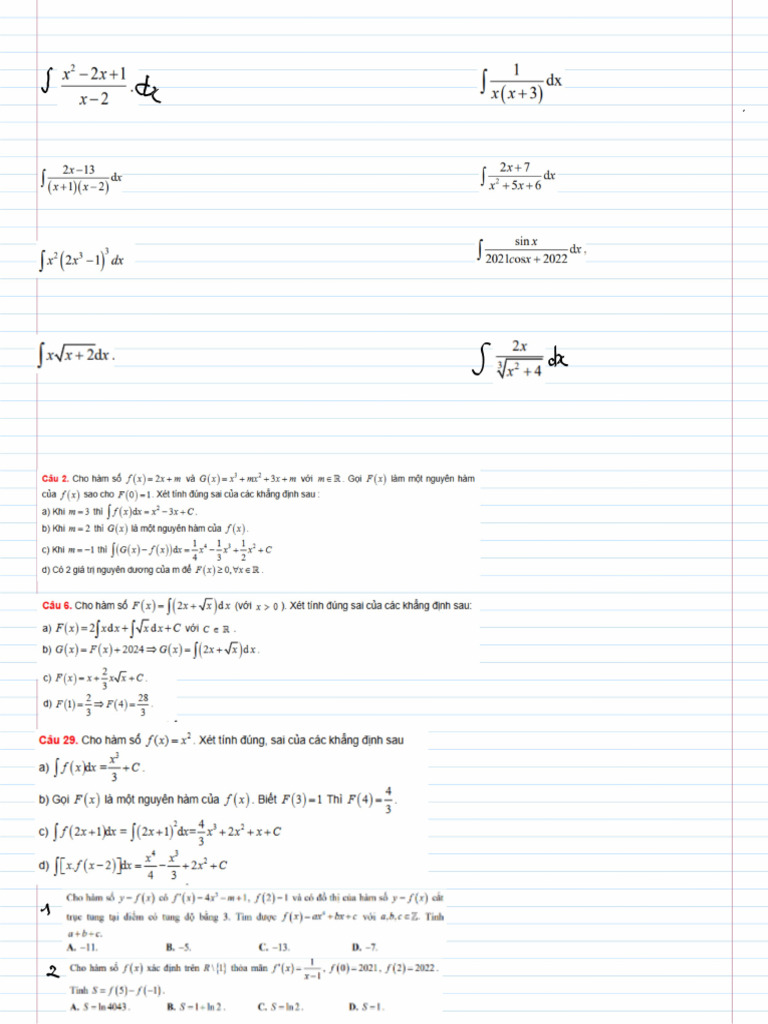 ∫ (x² − 2x + 1)/(x − 2) . dx
∫ 1/(x(x + 3)) dx
∫ (2x − 13)/((x + 1)(x − 2)) dx
∫ (2x + 7)/(x² + 5x + 6) dx
∫ x²(2x³ − 1)³ dx
∫ sin x/(2021cosx + 2022) dx ,
∫ x√(x + 2)dx .
∫ 2x/∛(x² + 4) dx
Câu 2. Cho hàm số f(x) = 2x + m và G(x) = x³ + mx² + 3x + m với m ∈ ℝ . Gọi F(x) làm một nguyên hàm
của f(x) sao cho F(0) = 1. Xét tính đúng sai của các khẳng định sau :
a) Khi m = 3 thì ∫ f(x)dx = x² − 3x + C .
b) Khi m = 2 thì G(x) là một nguyên hàm của f(x).
c) Khi m = −1 thì ∫(G(x) − f(x))dx = 1/4 x⁴ − 1/3 x³ + 1/2 x² + C
d) Có 2 giá trị nguyên dương của m để F(x) ≥ 0, ∀x ∈ ℝ .
Câu 6. Cho hàm số F(x) = ∫(2x + √x)dx (với x > 0 ). Xét tính đúng sai của các khẳng định sau:
a) F(x) = 2∫xdx + ∫√x dx + C với C ∈ ℝ .
b) G(x) = F(x) + 2024 ⇒ G(x) = ∫(2x + √x)dx .
c) F(x) = x + 2/3 x√x + C .
d) F(1) = 2/3 ⇒ F(4) = 28/3 .
Câu 29. Cho hàm số f(x) = x² . Xét tính đúng, sai của các khẳng định sau
a) ∫ f(x)dx = x³/3 + C .
b) Gọi F(x) là một nguyên hàm của f(x). Biết F(3) = 1 Thì F(4) = 4/3 .
c) ∫ f(2x + 1)dx = ∫(2x + 1)² dx = 4/3 x³ + 2x² + x + C
d) ∫[x.f(x − 2)]dx = x⁴/4 − x³/3 + 2x² + C
1 Cho hàm số y = f(x) có f'(x) = 4x³ − m + 1, f(2) = 1 và có đồ thị của hàm số y = f(x) cắt
trục tung tại điểm có tung độ bằng 3. Tìm được f(x) = ax⁴ + bx + c với a, b, c ∈ ℤ. Tính
a + b + c.
A. −11. B. −5. C. −13. D. −7.
2 Cho hàm số f(x) xác định trên R\{1} thỏa mãn f'(x) = 1/(x − 1) , f(0) = 2021, f(2) = 2022 .
Tính S = f(5) − f(−1) .
A. S = ln 4043 . B. S = 1 + ln 2 . C. S = ln 2 . D. S = 1 .